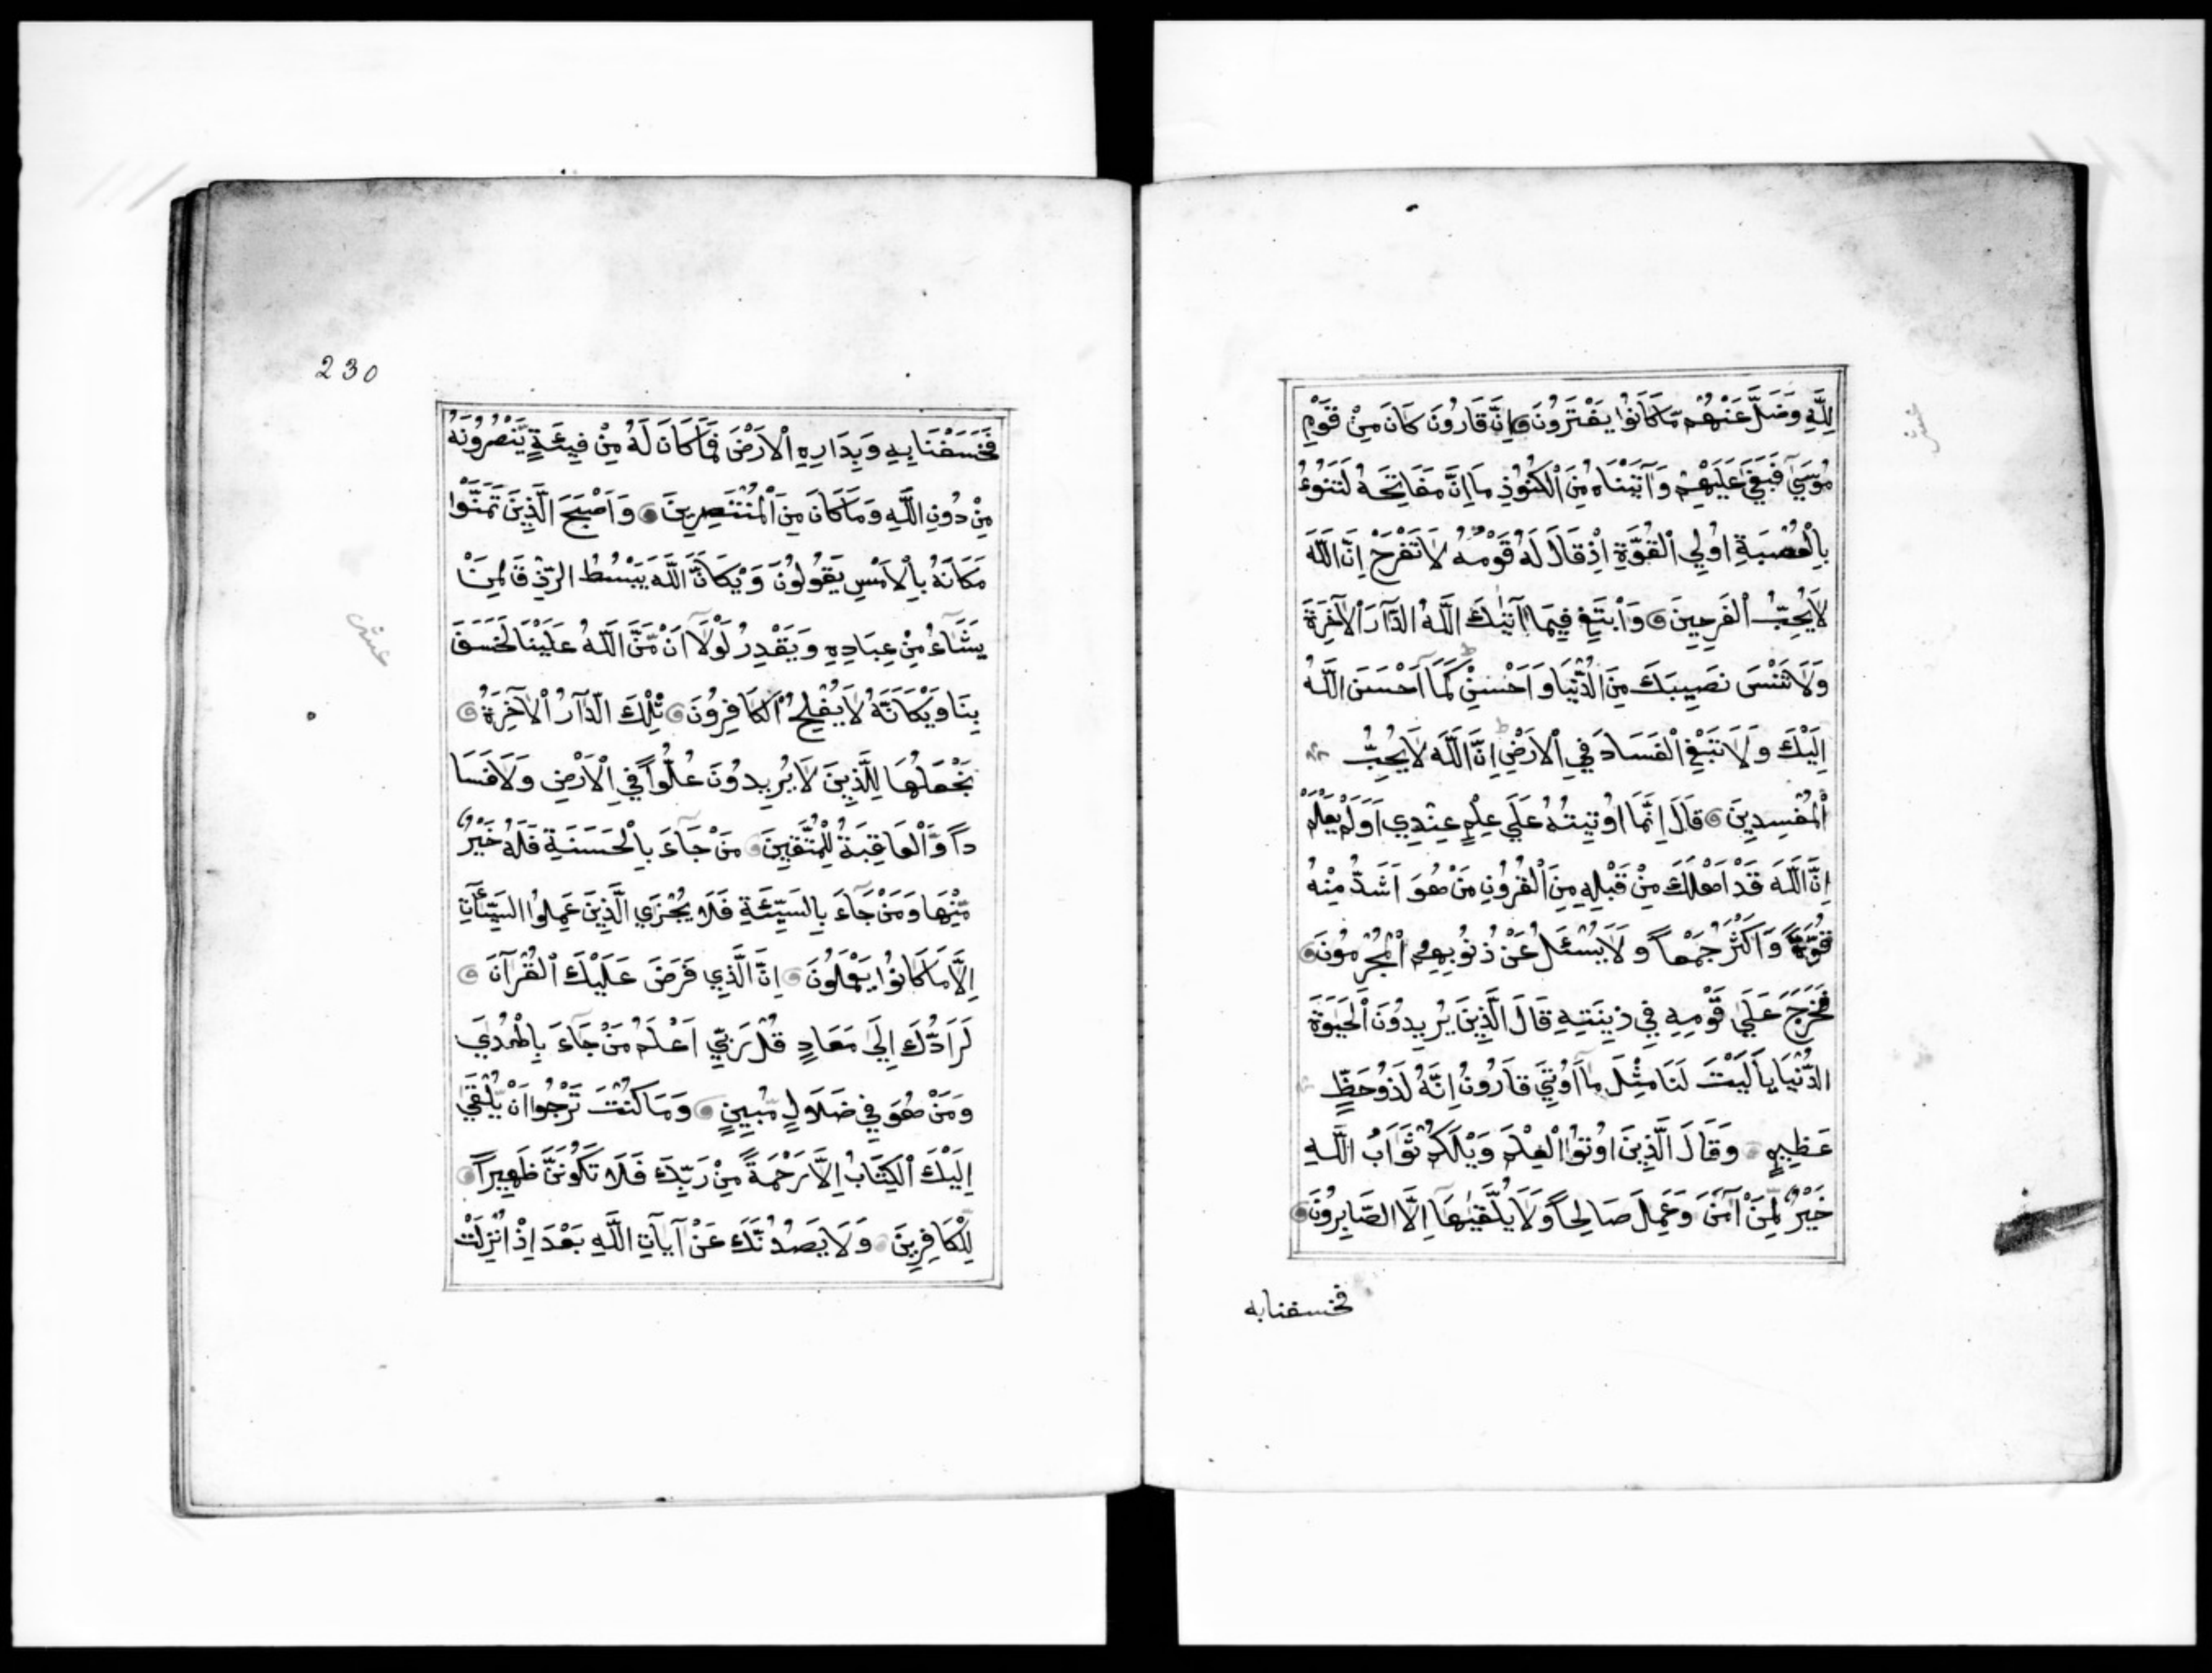 لِلَّهِ وَضَلَّ عَنْهُمْ مَّا كَانُوا يَفْتَرُونَ اِنَّ قَارُونَ كَانَ مِنْ قَوْمِ
مُوسَي فَبَغَي عَلَيْهِمْ وَآتَيْنَاهُ مِنَ الْكُنُوزِ مَا اِنَّ مَفَاتِحَهُ لَتَنُوءُ
بِالْعُصْبَةِ اُولِي الْقُوَّةِ اِذْ قَالَ لَهُ قَوْمُهُ لَا تَفْرَحْ اِنَّ اللَّهَ
لَا يُحِبُّ الْفَرِحِينَ وَابْتَغِ فِيمَا آتٰيكَ اللَّهُ الدَّارَ الْآخِرَةَ
وَلَا تَنْسَ نَصِيبَكَ مِنَ الدُّنْيَا وَاَحْسِنْ كَمَا اَحْسَنَ اللَّهُ
اِلَيْكَ وَلَا تَبْغِ الْفَسَادَ فِي الْاَرْضِ اِنَّ اللَّهَ لَا يُحِبُّ
الْمُفْسِدِينَ قَالَ اِنَّمَا اُوتِيتُهُ عَلَي عِلْمٍ عِنْدِي اَوَلَمْ يَعْلَمْ
اِنَّ اللَّهَ قَدْ اَهْلَكَ مِنْ قَبْلِهِ مِنَ الْقُرُونِ مَنْ هُوَ اَشَدُّ مِنْهُ
قُوَّةً وَاَكْثَرُ جَمْعاً وَلَا يُسْئَلُ عَنْ ذُنُوبِهِمُ الْمُجْرِمُونَ
فَخَرَجَ عَلَي قَوْمِهِ فِي زِينَتِهِ قَالَ الَّذِينَ يُرِيدُونَ الْحَيٰوةَ
الدُّنْيَا يَا لَيْتَ لَنَا مِثْلَ مَا اُوتِيَ قَارُونُ اِنَّهُ لَذُو حَظٍّ
عَظِيمٍ وَقَالَ الَّذِينَ اُوتُوا الْعِلْمَ وَيْلَكُمْ ثَوَابُ اللَّهِ
خَيْرٌ لِّمَنْ آمَنَ وَعَمِلَ صَالِحاً وَلَا يُلَقّٰيهَا اِلَّا الصَّابِرُونَ
فخسفنا به
230
فَخَسَفْنَا بِهِ وَبِدَارِهِ الْاَرْضَ فَمَا كَانَ لَهُ مِنْ فِيئَةٍ يَّنْصُرُونَهُ
مِنْ دُونِ اللَّهِ وَمَا كَانَ مِنَ الْمُنْتَصِرِينَ وَاَصْبَحَ الَّذِينَ تَمَنَّوْا
مَكَانَهُ بِالْاَمْسِ يَقُولُونَ وَيْكَاَنَّ اللَّهَ يَبْسُطُ الرِّزْقَ لِمَنْ
يَشَاءُ مِنْ عِبَادِهِ وَيَقْدِرُ لَوْلَا اَنْ مَّنَّ اللَّهُ عَلَيْنَا لَخَسَفَ
بِنَا وَيْكَاَنَّهُ لَا يُفْلِحُ الْكَافِرُونَ تِلْكَ الدَّارُ الْآخِرَةُ
نَجْعَلُهَا لِلَّذِينَ لَا يُرِيدُونَ عُلُوّاً فِي الْاَرْضِ وَلَا فَسَا
داً وَالْعَاقِبَةُ لِلْمُتَّقِينَ مَنْ جَاءَ بِالْحَسَنَةِ فَلَهُ خَيْرٌ
مِّنْهَا وَمَنْ جَاءَ بِالسَّيِّئَةِ فَلَا يُجْزَي الَّذِينَ عَمِلُوا السَّيِّئَاتِ
اِلَّا مَا كَانُوا يَعْمَلُونَ اِنَّ الَّذِي فَرَضَ عَلَيْكَ الْقُرْآنَ
لَرَادُّكَ اِلَي مَعَادٍ قُلْ رَبِّي اَعْلَمُ مَنْ جَاءَ بِالْهُدَي
وَمَنْ هُوَ فِي ضَلَالٍ مُّبِينٍ وَمَا كُنْتَ تَرْجُوا اَنْ يُّلْقَي
اِلَيْكَ الْكِتَابُ اِلَّا رَحْمَةً مِنْ رَبِّكَ فَلَا تَكُونَنَّ ظَهِيراً
لِلْكَافِرِينَ وَلَا يَصُدُّنَّكَ عَنْ آيَاتِ اللَّهِ بَعْدَ اِذْ اُنْزِلَتْ
عشر